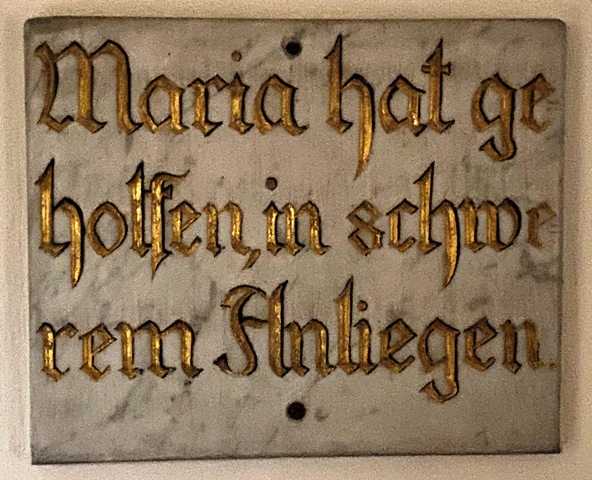 Maria hat ge
holfen, in schwe
rem Anliegen.